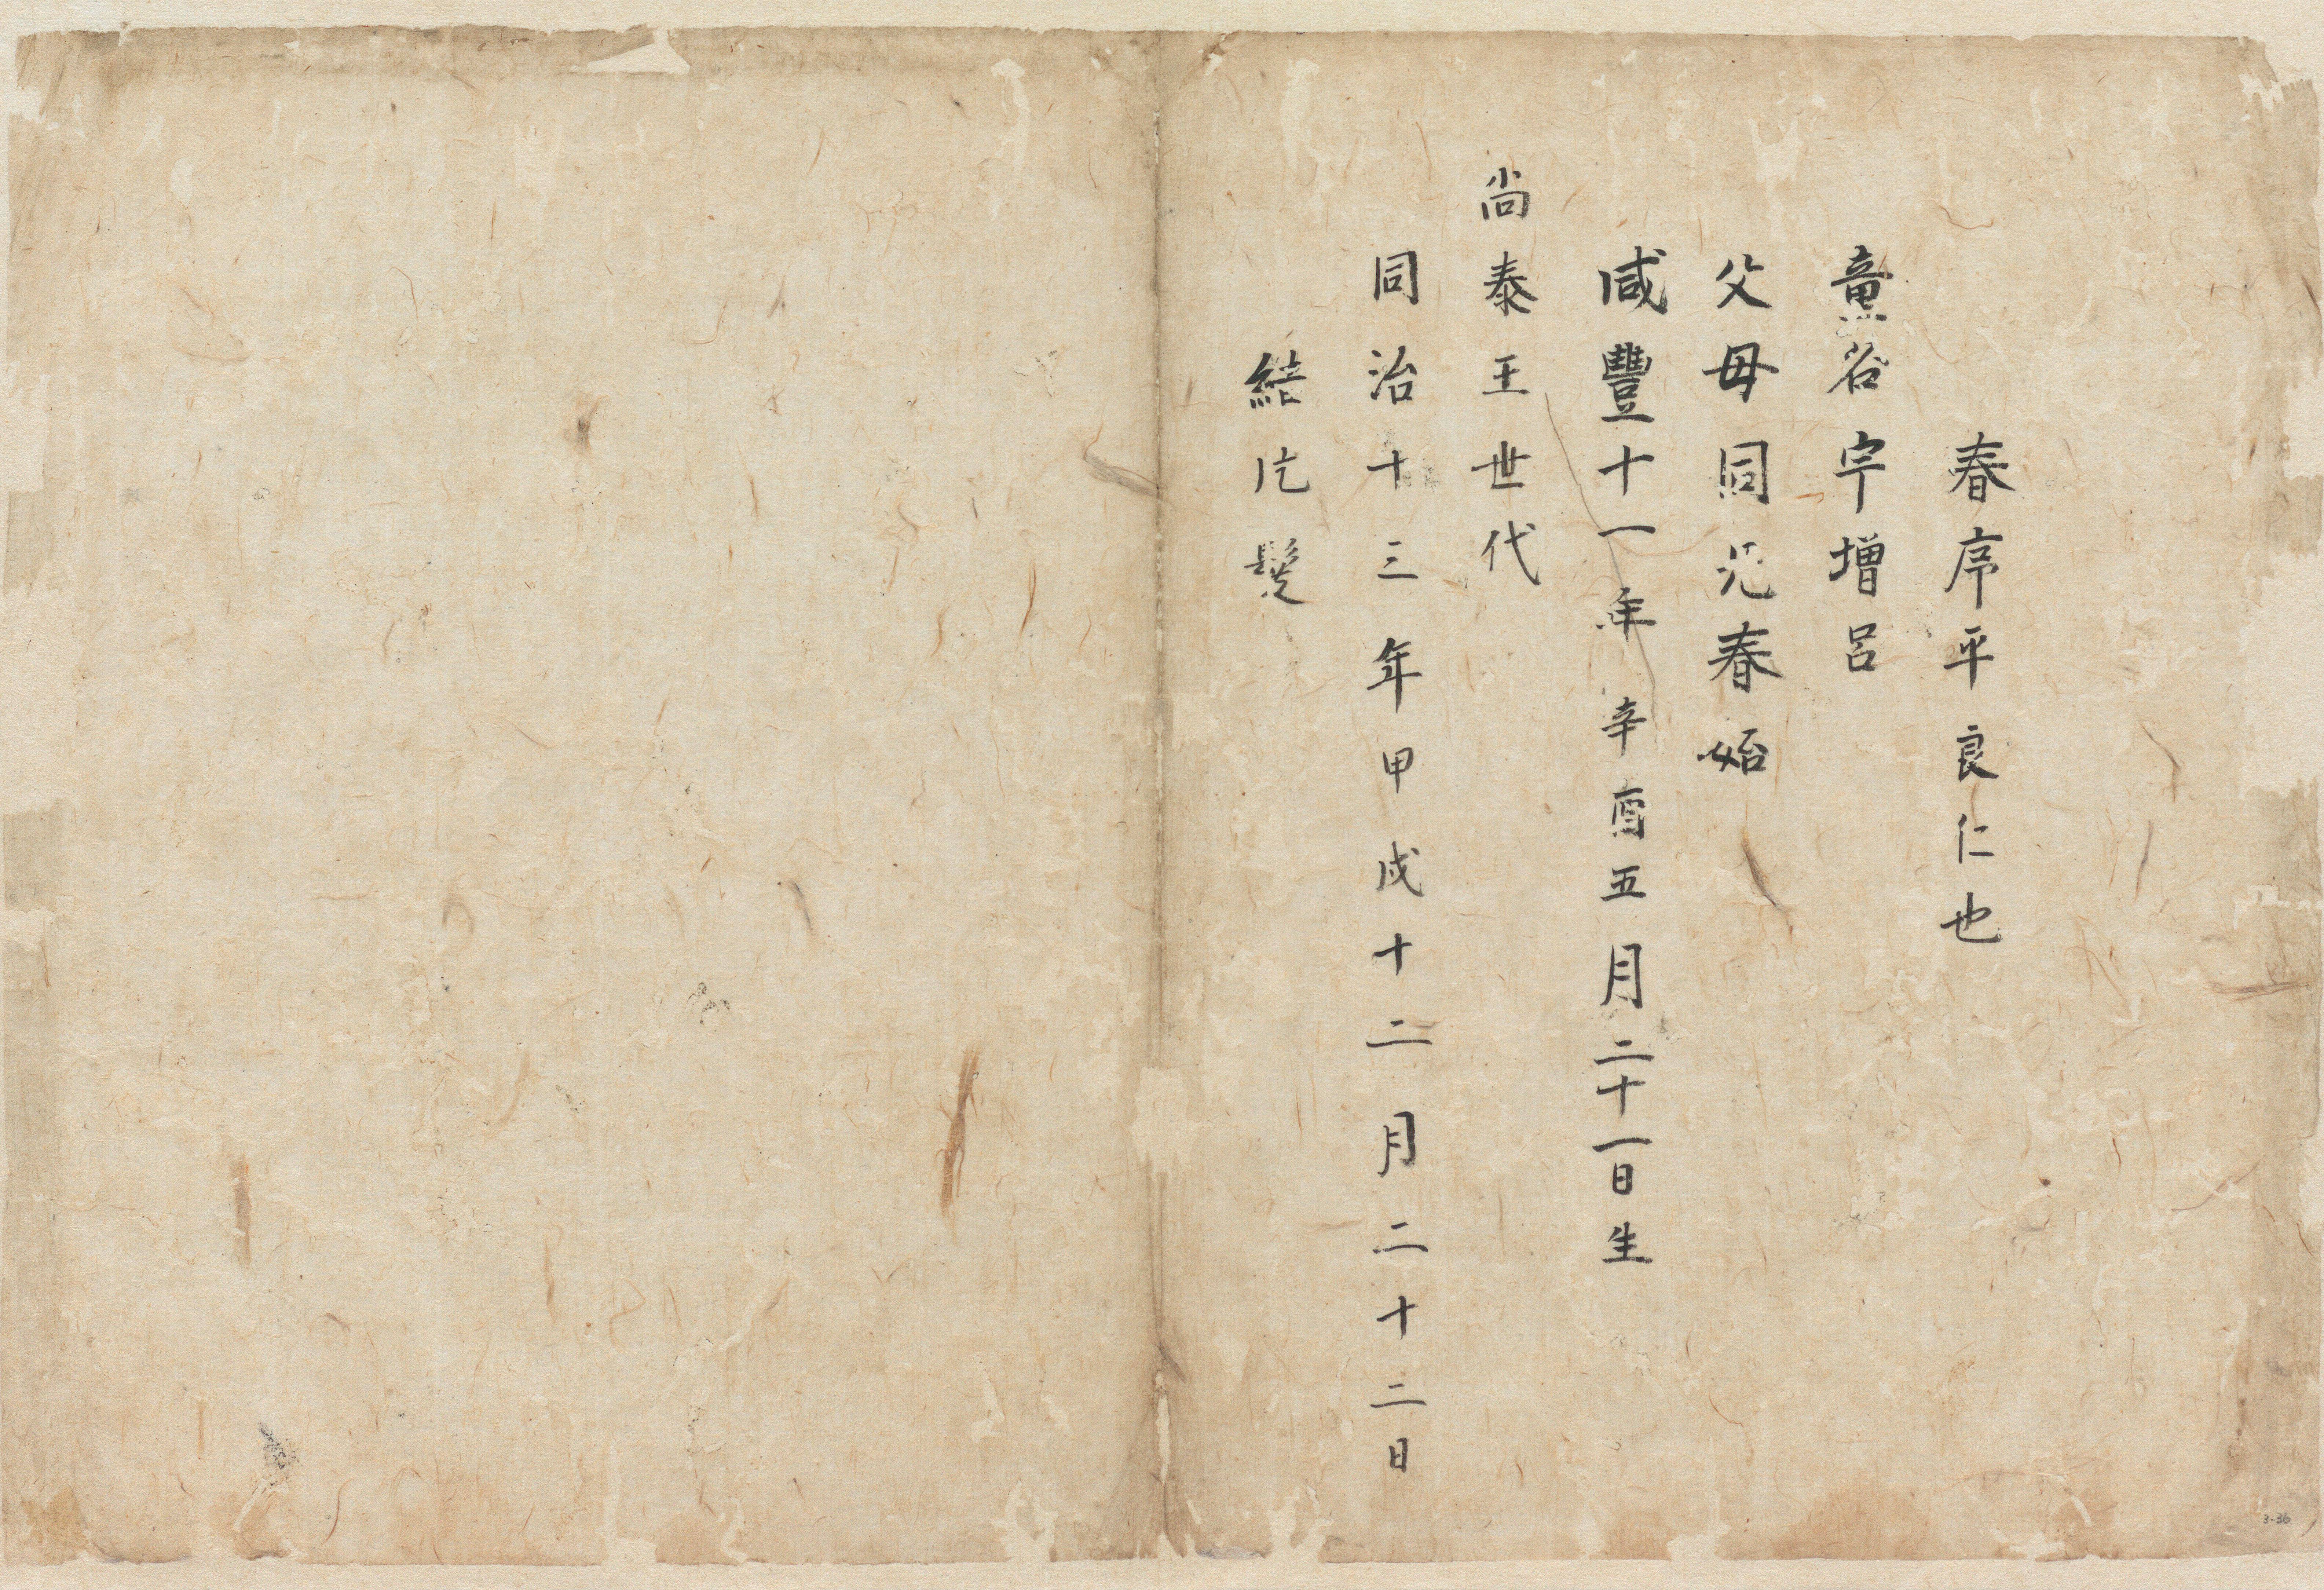 春序平良仁也
童名宇増呂
父母同兄春始
咸豐十一年辛酉五月二十一日生
尚泰王世代
同治十三年甲戌十二月二十二日
結片髪
3-36